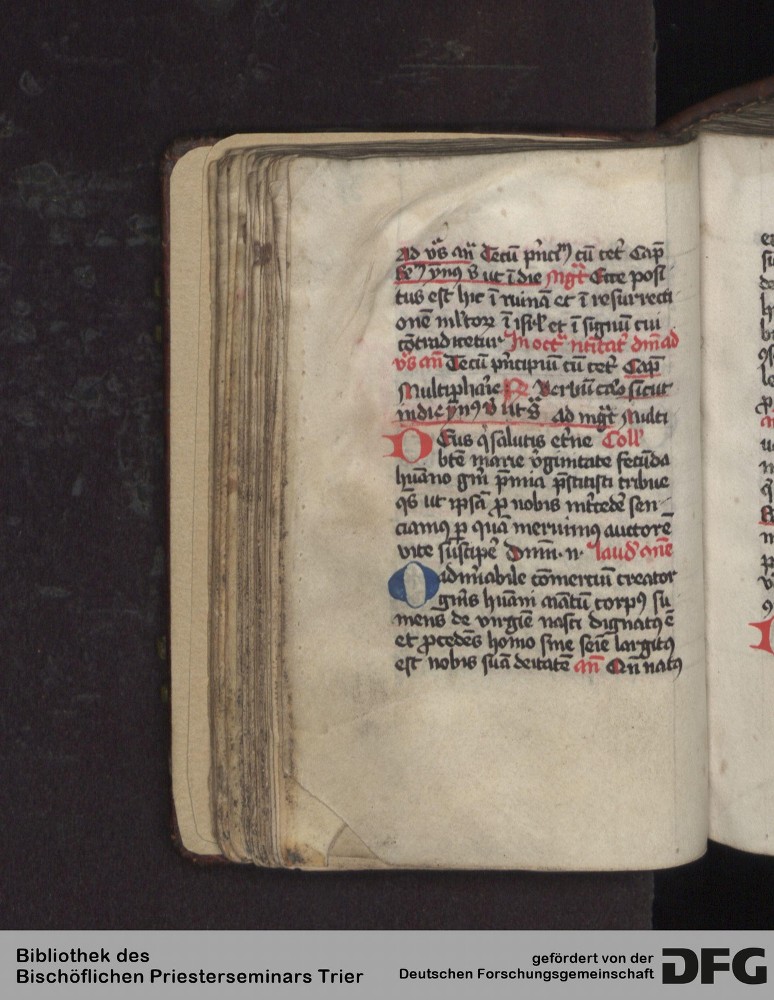 Ad vs̄ an̄ Tecū pͥnciꝰ cū cet̄ Cap̄
ꝰ ẏmnꝰ ꝟ ut ī die Mgt̄ Ecce posi
tus est hic ī ruinā et ī resurrecti
onē ml̄torꝝ ī isrl̄ et ī signū cui
cōtradicetur In oct̄ natitat̄ dm̄ ad
vs̄ an̄ Tecū pͥncipiū cū cet̄ Cap̄
Multiphāie R̄ Verbū caro sicut
in die ẏmnꝰ ꝟ ut sͣ Ad mgt̄ Multi
Deus qͥ salutis et̄ne Coll̄
bt̄e marie vͥginitate fecūda
hūano gn̄i p̄mia p̄stitisti tribue
qs̄ ut ipsā ꝓ nobis int̄cede᷑ sen
ciamꝰ ꝑ quā meruimꝰ auctorē
vite suscipe᷑ Dnm̄ .n. laud᷑ an̄e
O admͥabile cōmerciū creator
gn̄is hūani aīatū corpꝰ su
mens de virgīe nasci dignatꝰ ē
et ꝓcedēs homo sine seīe largitꝰ
est nobis suā deitatē an̄ Qn̄ natꝰ
Bibliothek des
Bischöflichen Priesterseminars Trier
gefördert von der
Deutschen Forschungsgemeinschaft
DFG